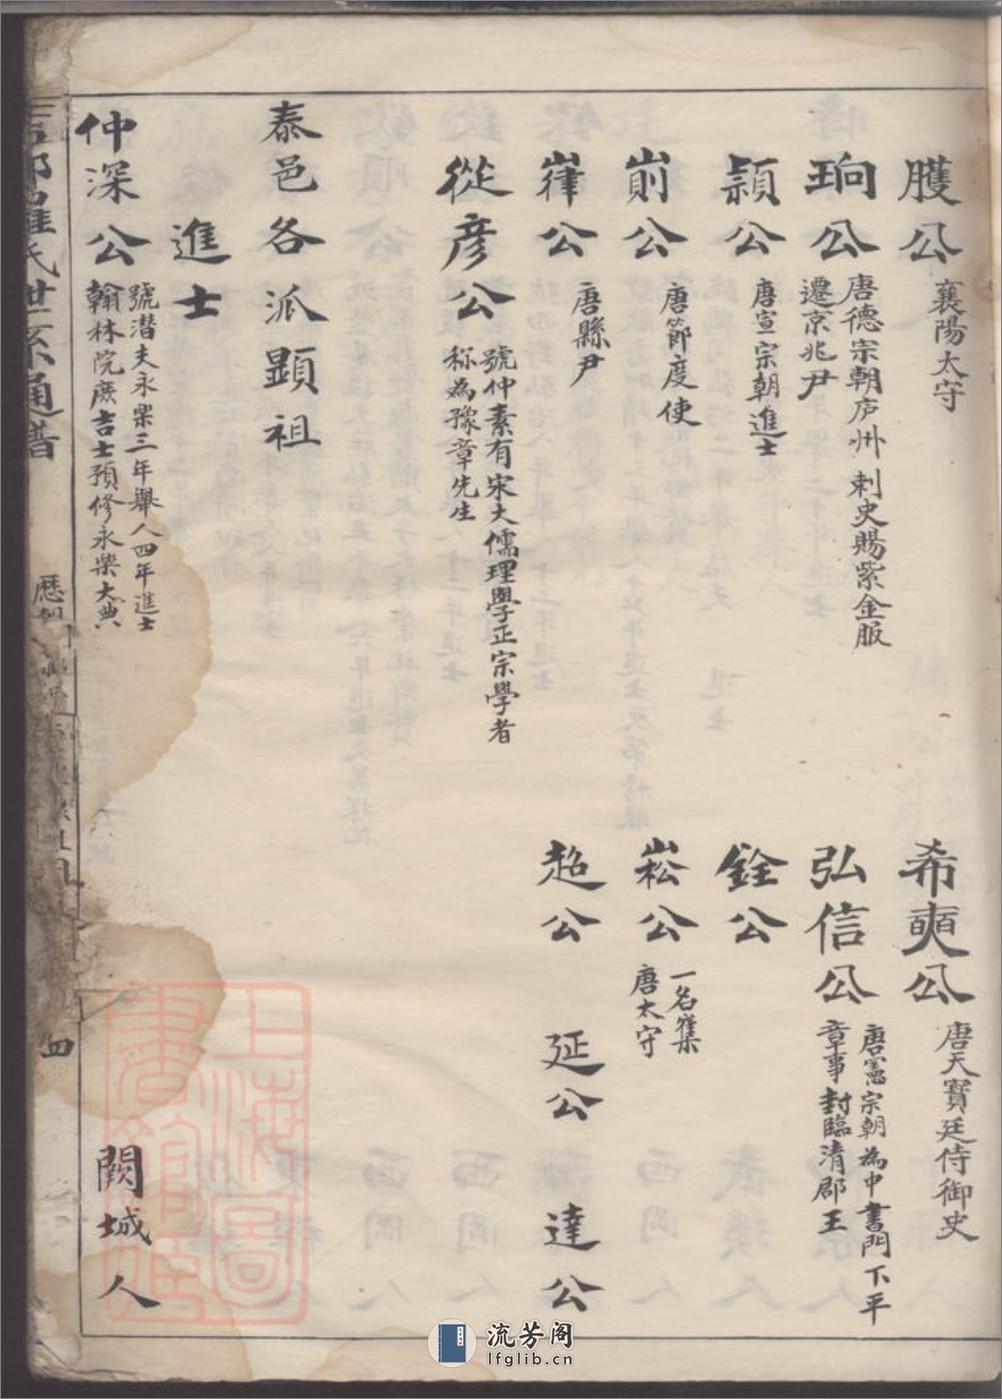 臒公 襄陽太守
希奭公 唐天寶廷侍御史
珦公 唐德宗朝庐州刺史賜紫金服
遷京兆尹
弘信公 唐憲宗朝為中書門下平
章事封臨清郡王
頴公 唐宣宗朝進士
銓公
崱公 唐節度使
崧公 一名
唐太守
嵂公 唐縣尹
超公 延公 達公
從彦公 號仲素有宋大儒理學正宗學者
称為豫章先生
泰邑各派顯祖
進士
仲深公 號潜夫永樂三年舉人四年進士
翰林院庶吉士預修永樂大典
闕城人
氏世系通譜
四
上海圖書館藏
流芳阁
lfglib.cn